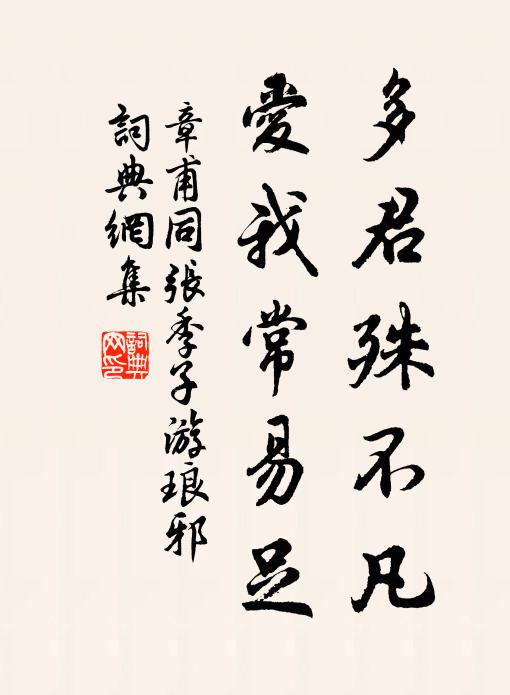 多君殊不凡
愛我常易足
章甫同張季子游琅邪
詞典網集
詞典网印